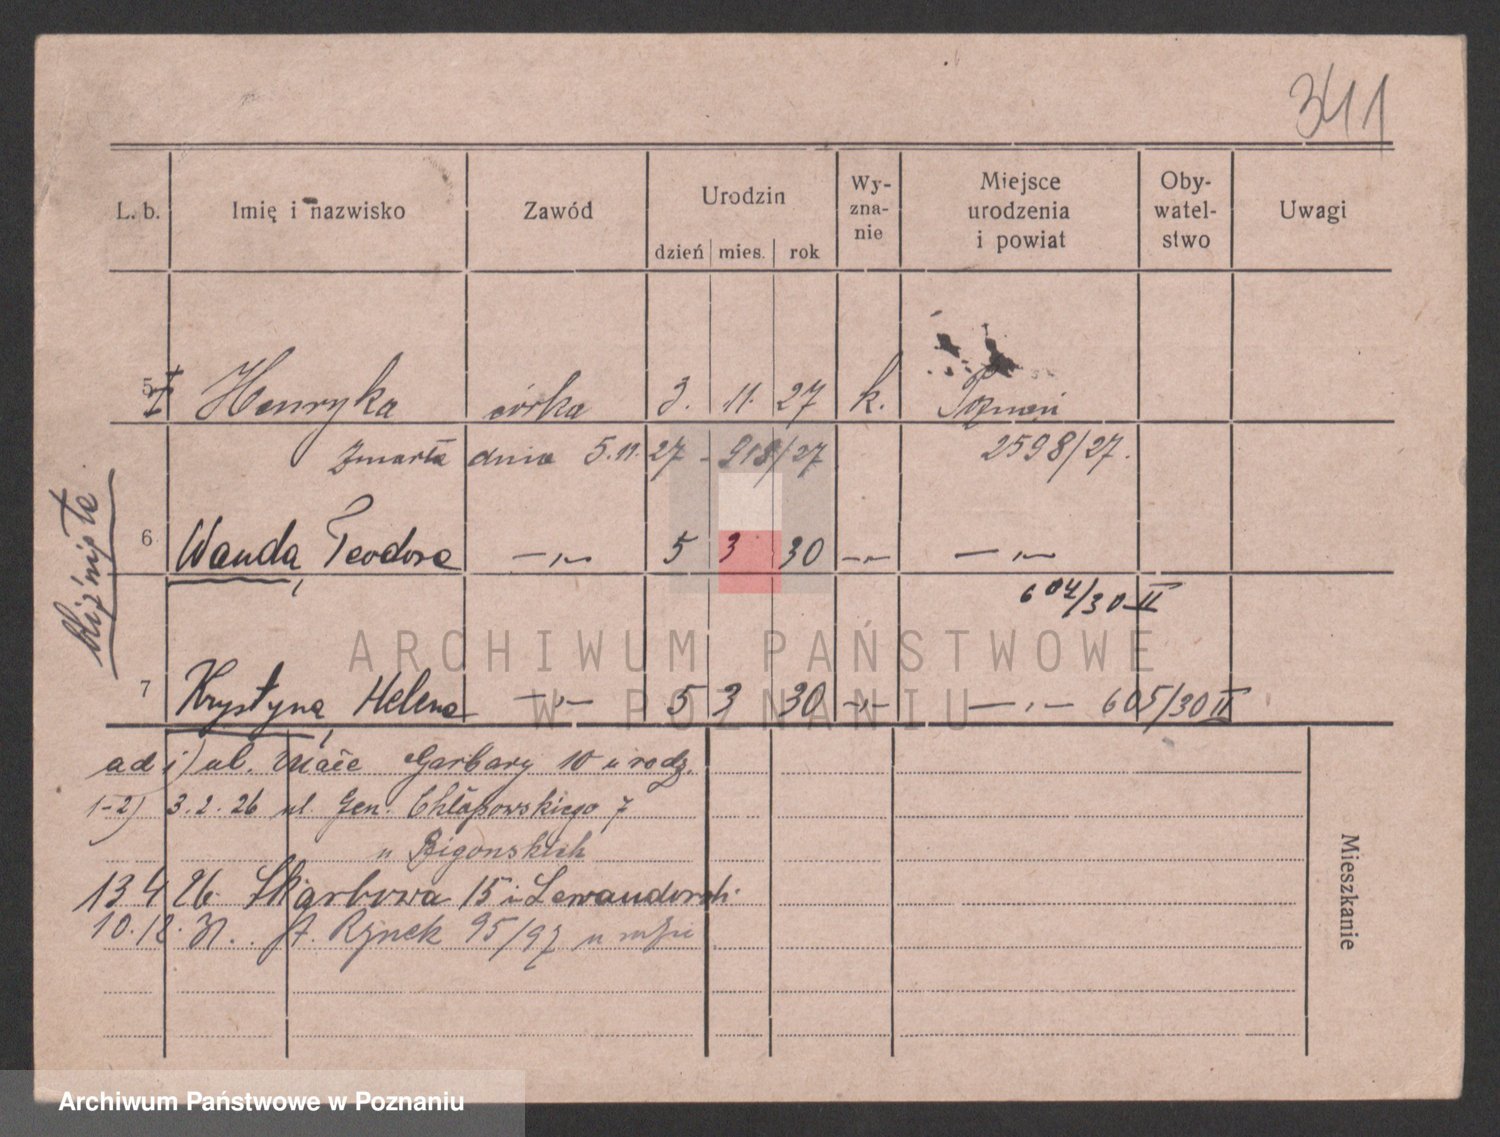 341
L. b. Imię i nazwisko Zawód Urodzin dzień mies. rok Wy-zna-nie Miejsce urodzenia i powiat Oby-watel-stwo Uwagi
5 Henryka córka 3. 11. 27 k. Poznań
zmarła dnia 5.11.27 - 918/27 2598/27.
bliźnięta
6 Wanda, Teodora —„— 5 3 30 —„— —„—
604/30 II
ARCHIWUM PAŃSTWOWE
W POZNANIU
7 Krystyna, Helena —„— 5 3 30 —„— —„— 605/30 II
ad 1) ul. Małe Garbary 10 u rodz.
1-2) 3.2.26 ul. Gen. Chłapowskiego 7
u Bigonskich
13 4 26 Skarbowa 15 u Lewandowski
10.12.31. St. Rynek 95/97 u
Mieszkanie
Archiwum Państwowe w Poznaniu